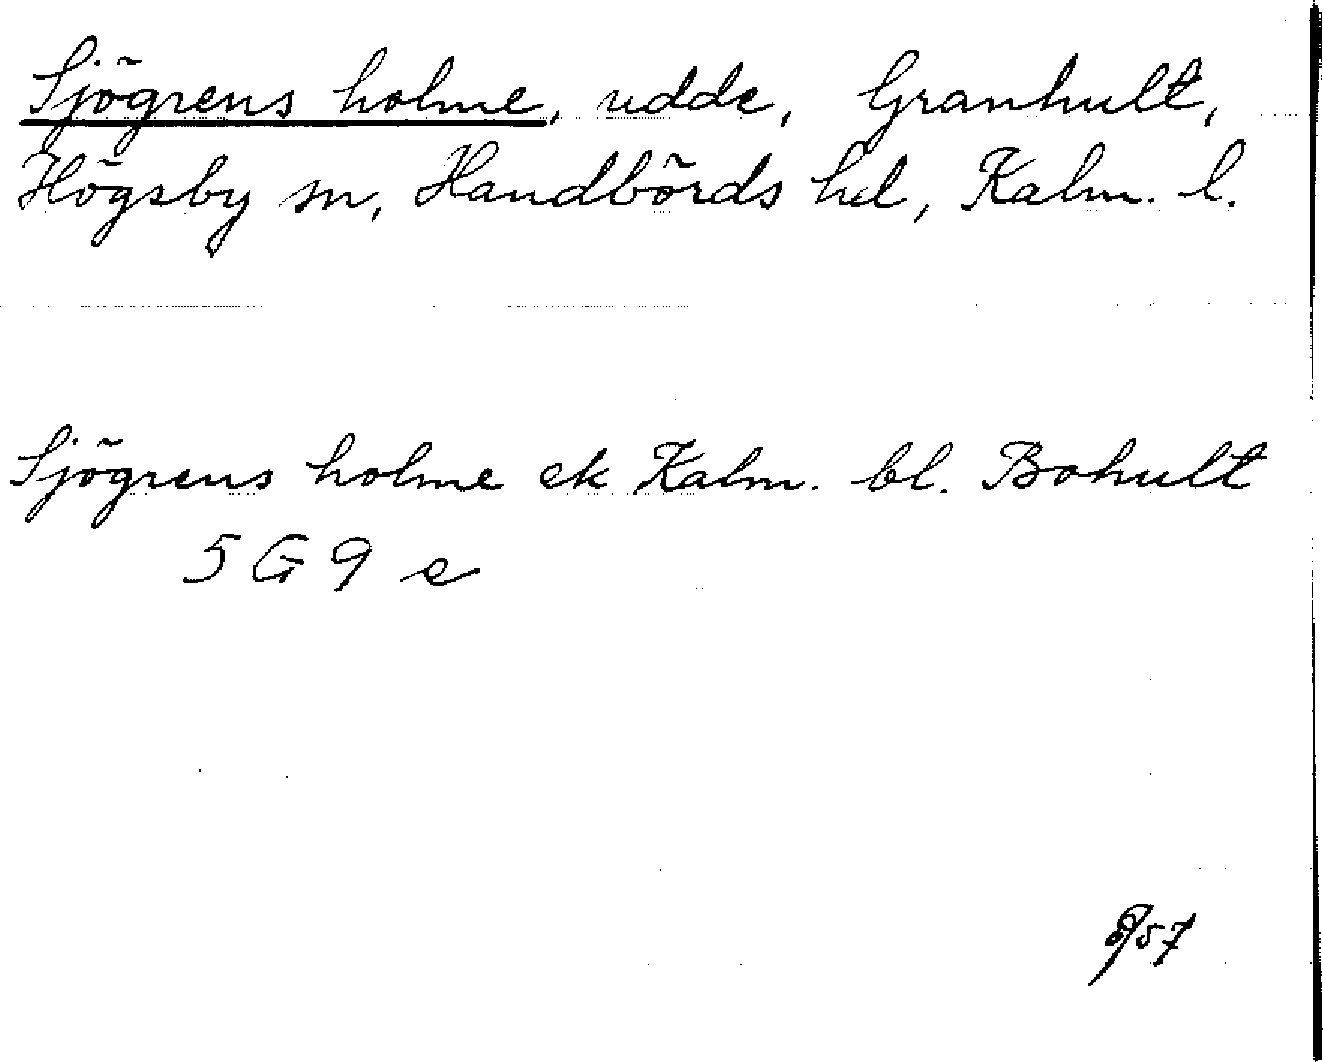 Sjögrens holme, udde, Granhult,
Högsby sn, Handbörds hd, Kalm. l.
Sjögrens holme ek Kalm. bl. Bohult
5 G 9 e